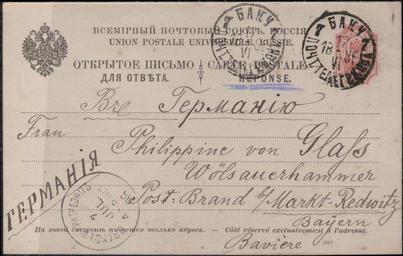 ВСЕМІРНЫЙ ПОЧТОВЫЙ СОЮЗЪ. РОССІЯ
UNION POSTALE UNIVERSELLE. RUSSIE.
ОТКРЫТОЕ ПИСЬМО CARTE POSTALE
ДЛЯ ОТВѢТА. RÉPONSE.
БАКУ
БАКУ
18
Германію
Frau Philippine von Glaß
Wölsauerhammer
Post-Brand b/Markt-Redwitz
Bayern
Bavière
ГЕРМАНІЯ
На этой сторонѣ пишется только адресъ. – Côté réservé exclusivement à l'adresse.